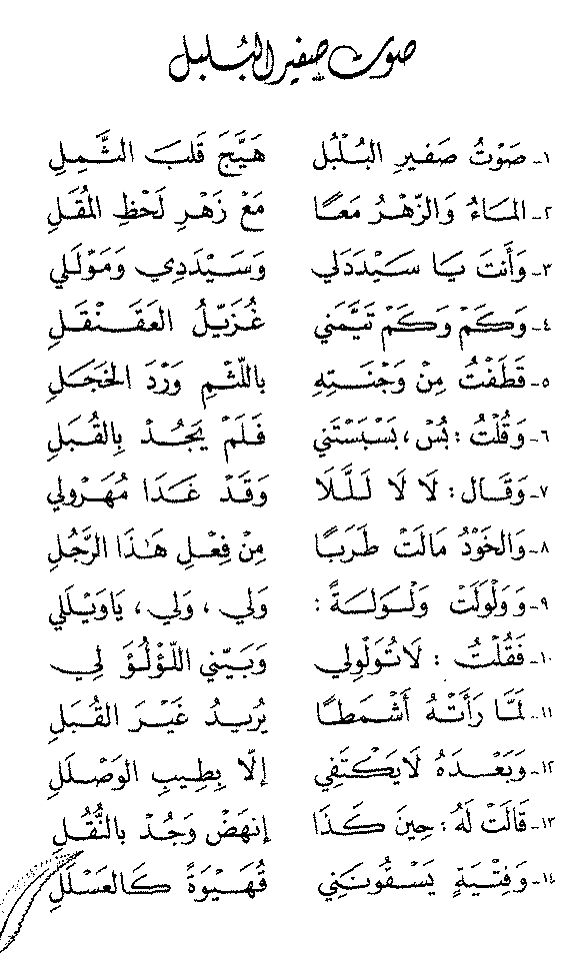 صوت صفير البُلبل
١- صَوْتُ صَفيرِ البُلْبُلِ هَيَّجَ قَلبَ الثَّمِلِ
٢- المَاءُ وَالزّهْرُ مَعًا مَعْ زَهْرِ لَحْظِ المُقَلِ
٣- وَأَنتَ يَا سَيْدَدَلي وَسَيْدَدِي وَمَوْلَلي
٤- وَكَمْ وَكَمْ تَيَّمَني غُزَيِّلُ العَقَنْقَلِ
٥- قَطَفْتُ مِنْ وَجْنَتِهِ بِاللّثْمِ وَرْدَ الخَجَلِ
٦- وَقُلْتُ : بُسْ ، بَسْبَسْتَني فَلَمْ يَجُدْ بِالقُبَلِ
٧- وَقَال : لَا لَا لَلَلَا وَقَدْ غَدَا مُهَرْولي
٨- وَالخَوْدُ مَالَتْ طَرَبًا مِنْ فِعْلِ هَذَا الرَّجُلِ
٩- وَوَلْوَلَتْ وَلْوَلَةً : وَلي ، وَلي ، يَاوَيْلَلي
١٠- فَقُلْتُ : لَاتُوَلْوِلي وَبَيِّني اللّؤْلُؤَ لِي
١١- لَمَّا رَأَتْهُ أَشْمَطَا يُرِيدُ غَيْرَ القُبَلِ
١٢- وَبَعْدَهُ لَايَكْتَفِي إلّا بِطِيبِ الوَصْلَلِ
١٣- قَالَتْ لَهُ : حِينَ كَذَا إنهَضْ وَجُدْ بِالنُّقَلِ
١٤- وَفِتْيَةٍ يَسْقُونَنِي قُهَيْوَةً كَالعَسَلَلِ